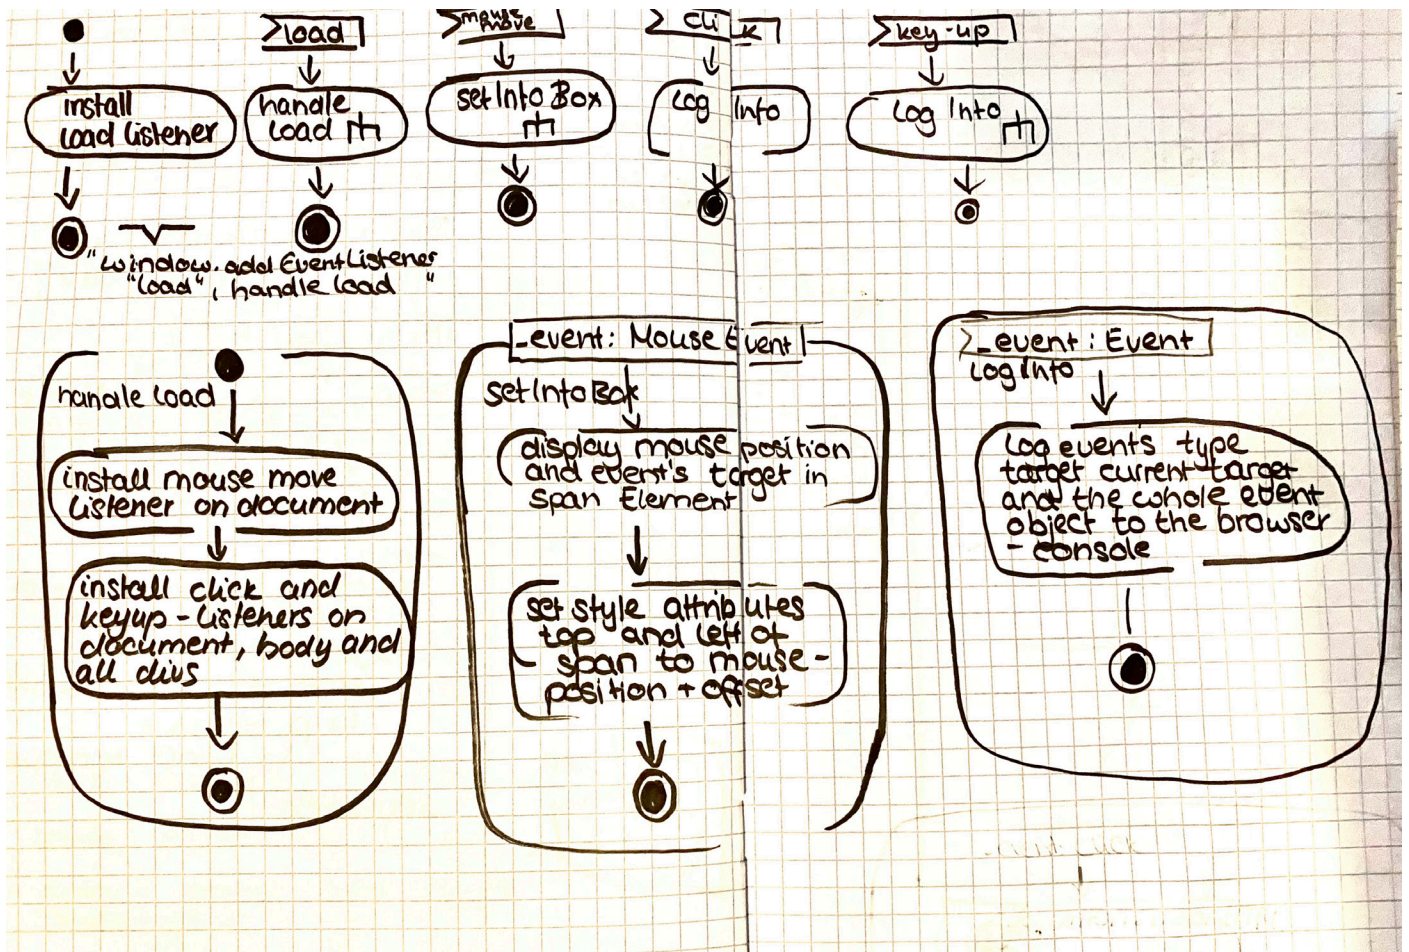 load
mouse
move
click
key-up
install
load listener
handle
load
setInfo Box
log Info
log Info
"window.add EventListener
"load", handle load "
handle load
install mouse move
listener on document
install click and
keyup-listeners on
document, body and
all divs
_event: Mouse Event
setInfo Box
display mouse position
and event's target in
span Element
set style attributes
top and left of
span to mouse-
position + offset
_event: Event
log Info
log events type
target current target
and the whole event
object to the browser
- console